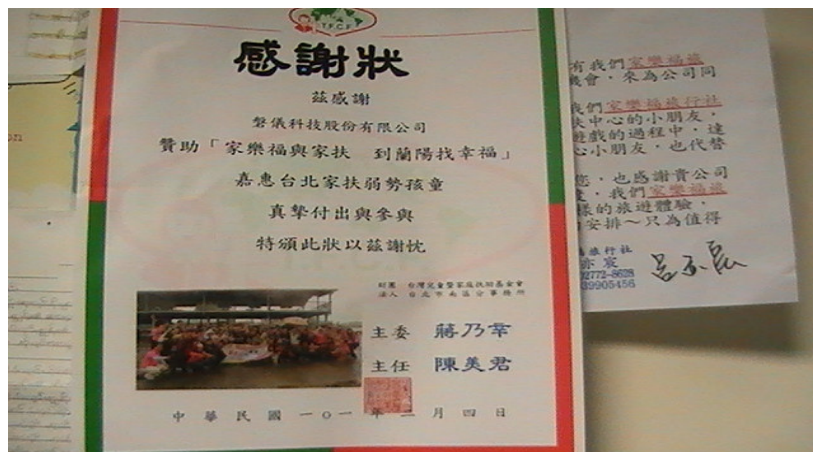 TFCF
感謝狀
茲感謝
磐儀科技股份有限公司
贊助「家樂福與家扶 到蘭陽找幸福」
嘉惠台北家扶弱勢孩童
真摯付出與參與
特頒此狀以茲謝忱
財團 台灣兒童暨家庭扶助基金會
法人 台北市南區分事務所
主委 蔣乃辛
主任 陳美君
中華民國一○一年二月四日
有我們家樂福旅
機會，來為公司同
我們家樂福旅行社
扶中心的小朋友，
遊戲的過程中，達
心小朋友，也代替
您，也感謝貴公司
我們家樂福旅
樣的旅遊體驗，
安排～只為值得
旅行社
亦宸
02772-8628
39905456